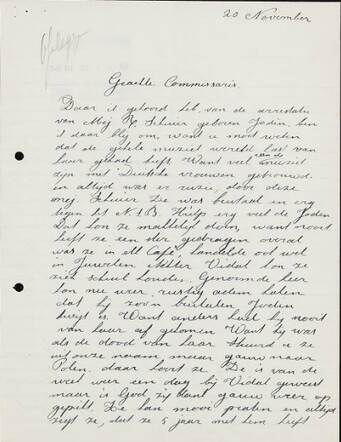 20 November
Geachte Commissaris.
Daar ik gehoord heb van de arrestatie
van Mej R. Scheier geboren Jodin, ben
ik daar blij om, want u moet weten
dat de gehele muziek wereld last van
haar gehad heeft. Want veel van de
zijn met Duitsche vrouwen getrouwd.
en altijd was er ruzie, door deze
mej. Scheier Zie was brutaal en erg
tegen het N.S.B. Hielp erg veel de Joden
Dat kon ze makkelijk doen, want nooit
heeft ze een ster gedragen overal
was ze in elk Café, handelde ook veel
in Juwelen
ziek schuil houden. Genoemde heer
kan nu weer rustig adem halen
dat hij zoon brutalen Joden
kwijt is. Want anders had hij nooit
van haar af gekomen Want hij was
als de dood van haar Stuurd u ze
uit onze naam maar gauw naar
Polen, daar hoort ze. Ze is van de
week weer een dag bij Vidal geweest
maar is God zij dank gauw weer op
gepikt. Ze kan mooi praten en altijd
zegt ze, dat ze 5 jaar met hem heeft